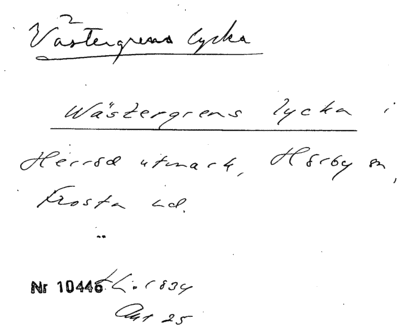 2
Västergrens lycka
Wästergrens lycka i
Herrod utmark, Hörby sn,
Frosta hd.
"
Nr 10446 1834
Akt 25